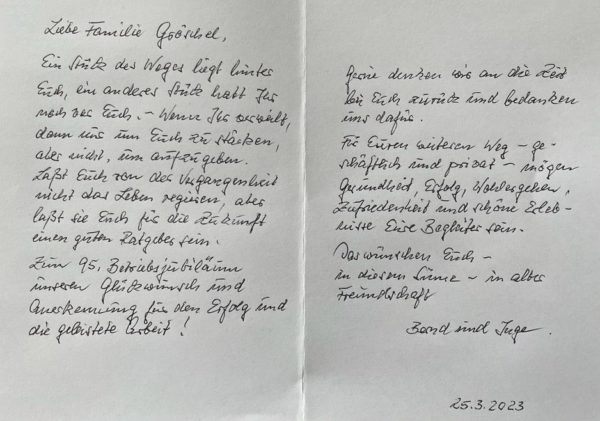 Liebe Familie Gröschel,
Ein Stück des Weges liegt hinter
Euch, ein anderes Stück habt Ihr
noch vor Euch. – Wenn Ihr verweilt,
dann nur um Euch zu stärken,
aber nicht, um aufzugeben.
Laßt Euch von der Vergangenheit
nicht das Leben regieren, aber
laßt sie Euch für die Zukunft
einen guten Ratgeber sein.
Zum 95. Betriebsjubiläum
unseren Glückwunsch und
Anerkennung für den Erfolg und
die geleistete Arbeit!
Gerne denken wir an die Zeit
bei Euch zurück und bedanken
uns dafür.
Für Euren weiteren Weg – ge-
schäftlich und privat – mögen
Gesundheit, Erfolg, Wohlergehen,
Zufriedenheit und schöne Erleb-
nisse Eure Begleiter sein.
Das wünschen Euch –
in diesem Sinne – in alter
Freundschaft
Bernd und Inge.
25.3.2023